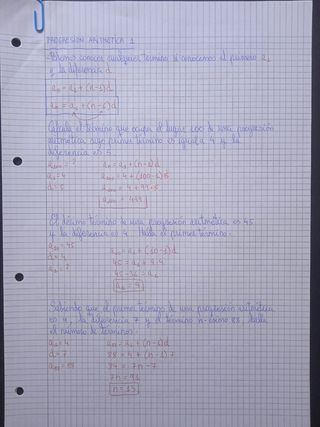 PROGRESIÓN ARITMÉTICA 1
Podemos conocer cualquier término si conocemos el primero a₁
y la diferencia d.
aₙ = a₁ + (n-1)d
aₙ = a₁ + (n-1)d
Calcula el término que ocupa el lugar 100 de una progresión
aritmética cuyo primer término es igual a 4 y la
diferencia es 5.
a₁₀₀ = ? aₙ = a₁ + (n-1)d
a₁ = 4 a₁₀₀ = 4 + (100-1)5
d = 5 a₁₀₀ = 4 + 99·5
a₁₀₀ = 499
El décimo término de una progresión aritmética es 45
y la diferencia es 4. Halla el primer término.
a₁₀ = 45 a₁₀ = a₁ + (10-1)d
d = 4 45 = a₁ + 9·4
a₁ = ? 45 - 36 = a₁
a₁ = 9
Sabiendo que el primer término de una progresión aritmética
es 4, la diferencia 7 y el término n-ésimo 88, halla
el número de términos.
a₁ = 4 = a₁ + (n-1)d
d = 7 88 = 4 + (n-1)7
= 88 84 = 7n - 7
7n = 91
n = 13